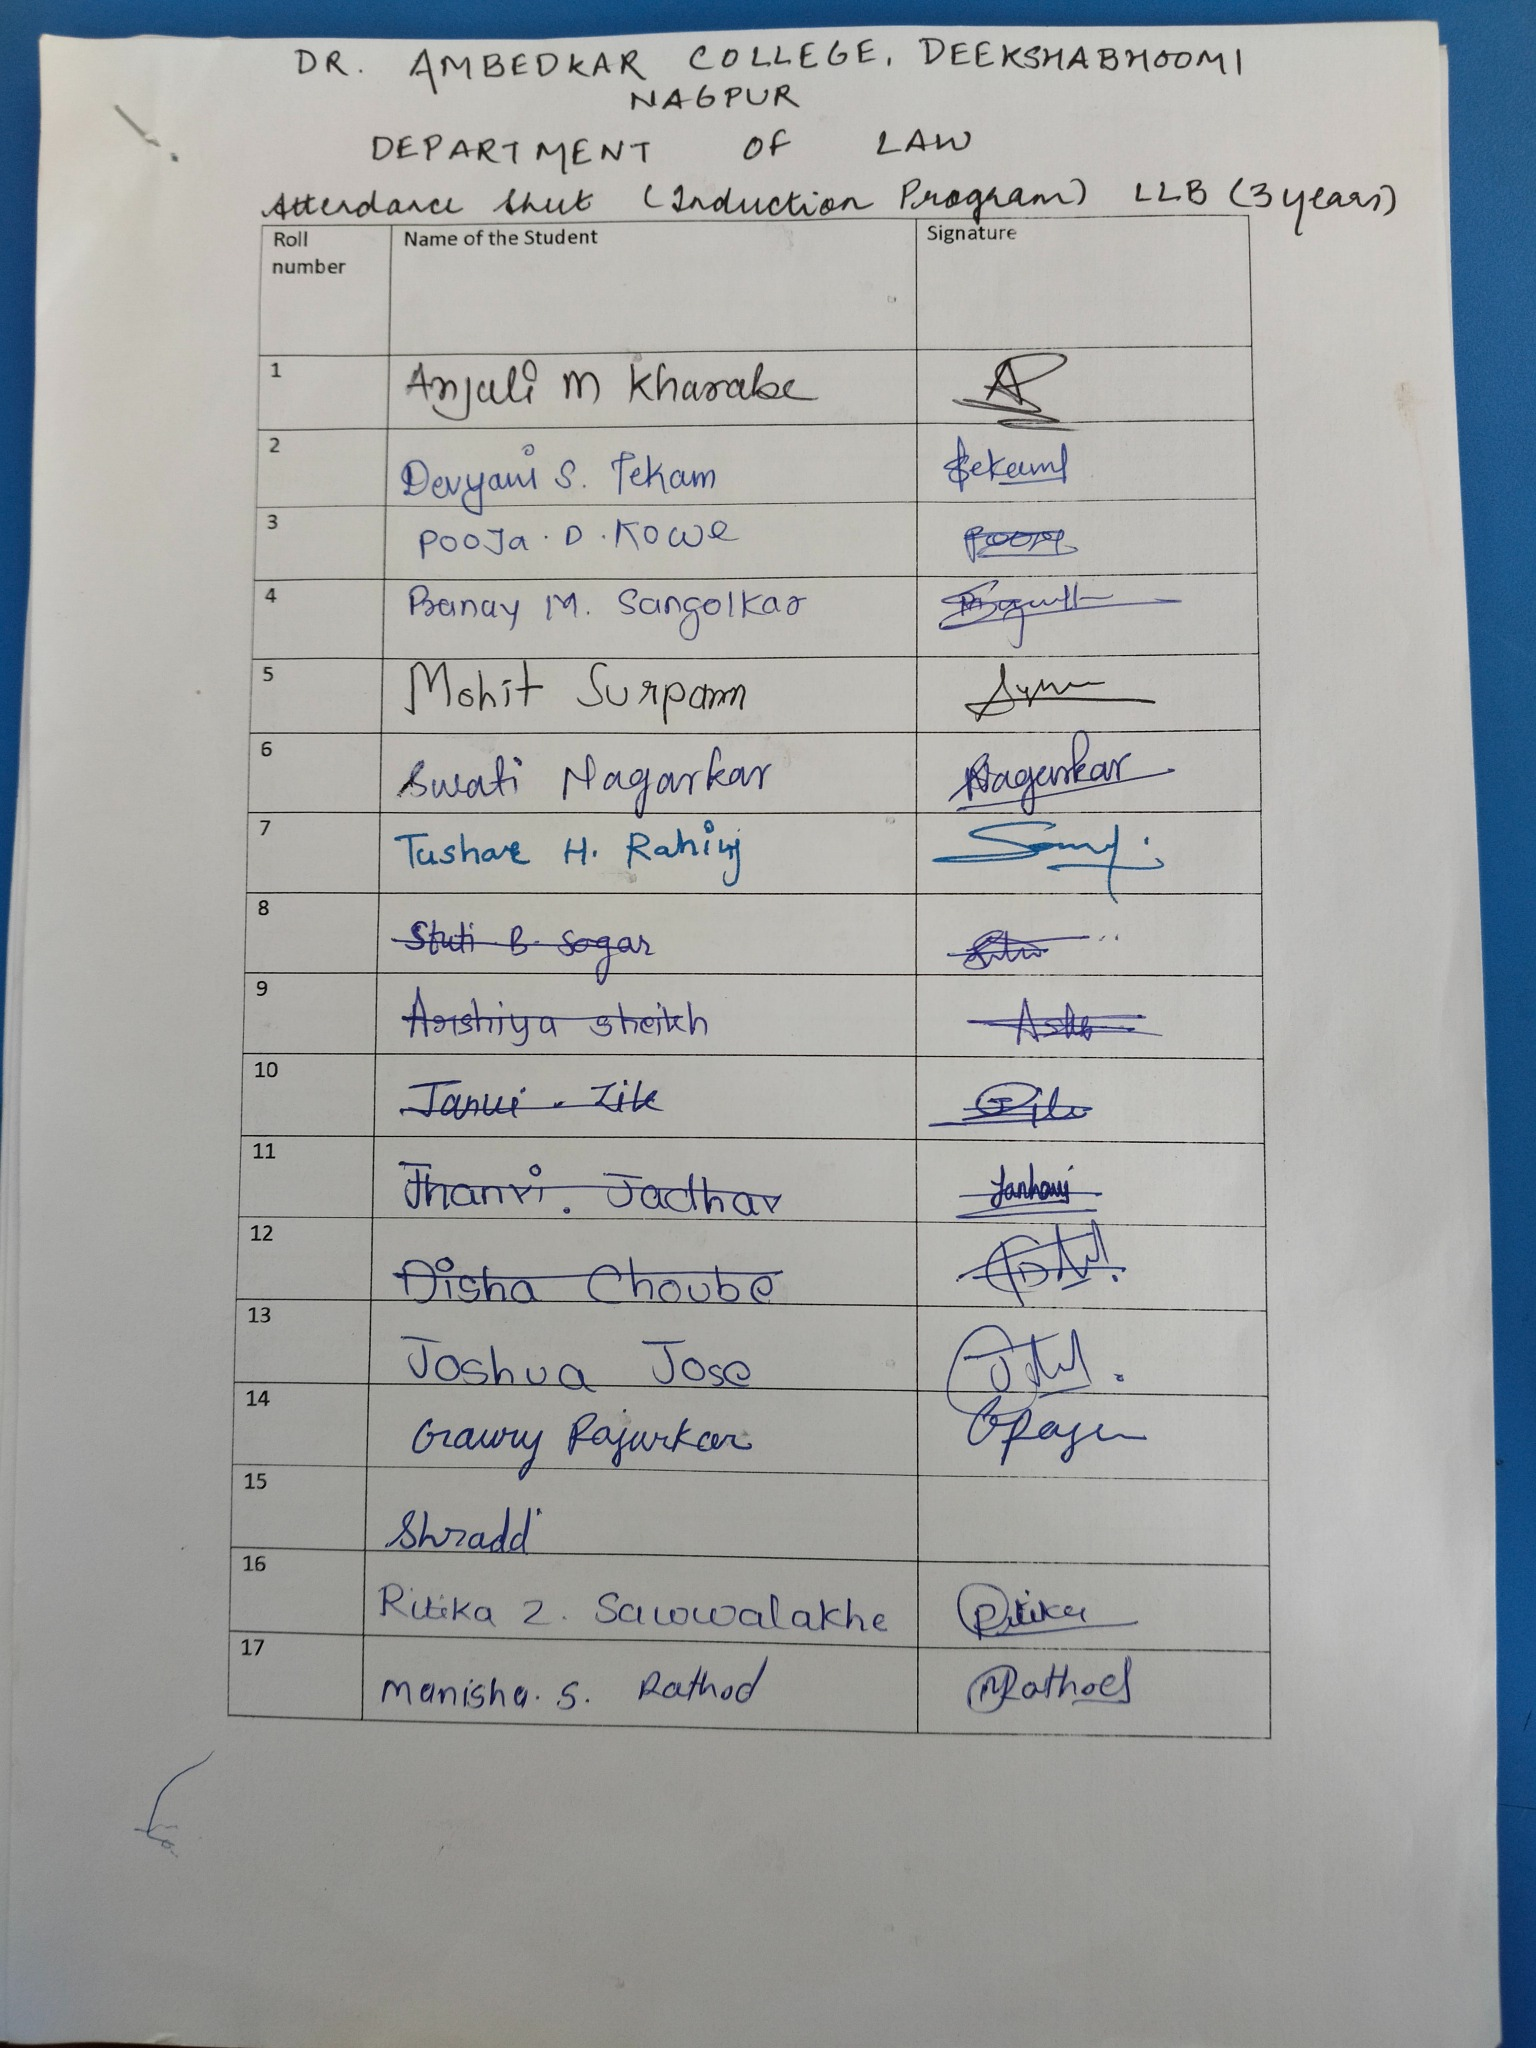 DR. AMBEDKAR COLLEGE, DEEKSHABHOOMI
NAGPUR
DEPARTMENT OF LAW
Attendance Sheet (Induction Program) LLB (3 years)
Roll number Name of the Student Signature
1 Anjali M Kharabe
2 Devyani S. Tekam Tekam
3 Pooja . D . Kowe Pooja
4 Pranay M. Sangolkar
5 Mohit Surpam
6 Swati Nagarkar Nagarkar
7 Tushar H.
8 Stuti B. Sogar
9 Arshiya Sheikh
10 Janvi . Zilk
11 Jhanvi. Jadhav Janhavi
12 Disha Choube
13 Joshua Jose
14 Gaury Rajurkar
15 Shradd
16 Ritika Z. Sawwalakhe Ritika
17 Manisha. S. Rathod MRathod